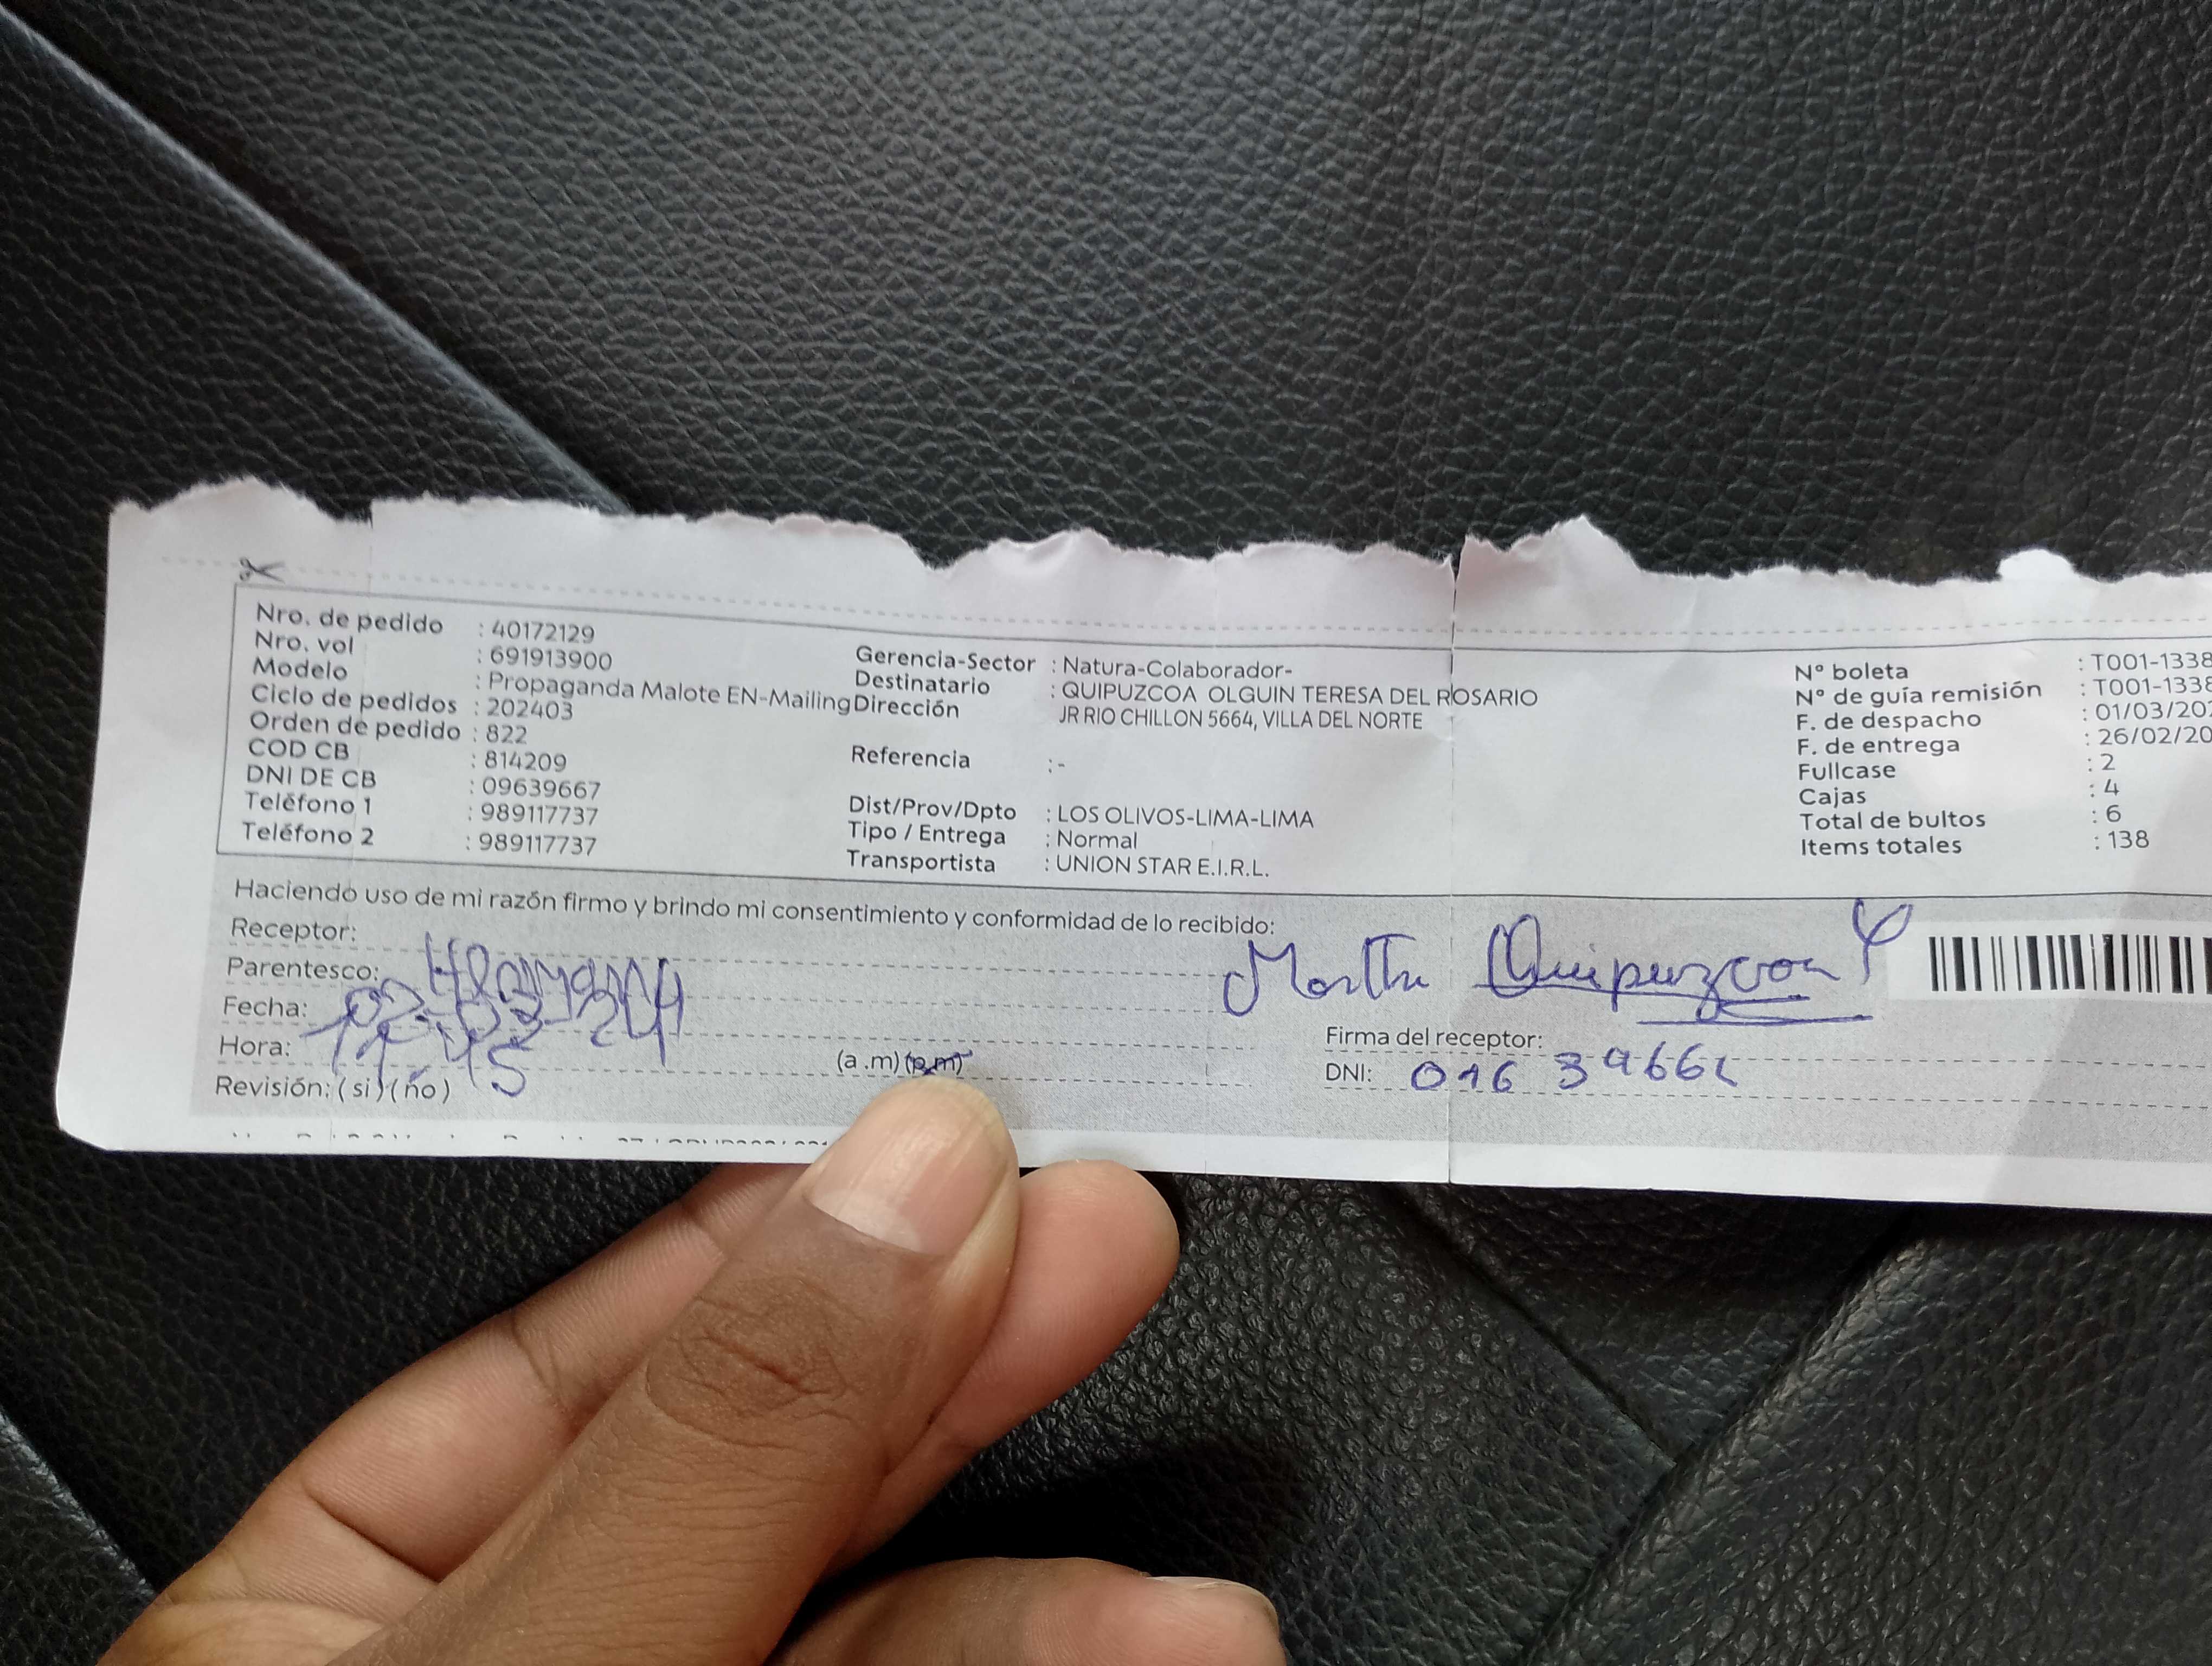 Nro. de pedido : 40172129
Nro. vol : 691913900
Modelo : Propaganda Malote EN-Mailing
Ciclo de pedidos : 202403
Orden de pedido : 822
COD CB : 814209
DNI DE CB : 09639667
Teléfono 1 : 989117737
Teléfono 2 : 989117737
Gerencia-Sector : Natura-Colaborador-
Destinatario : QUIPUZCOA OLGUIN TERESA DEL ROSARIO
Dirección JR RIO CHILLON 5664, VILLA DEL NORTE
Referencia : -
Dist/Prov/Dpto : LOS OLIVOS-LIMA-LIMA
Tipo / Entrega : Normal
Transportista : UNION STAR E.I.R.L.
N° boleta : T001-1338
N° de guía remisión : T001-1338
F. de despacho : 01/03/202
F. de entrega : 26/02/20
Fullcase : 2
Cajas : 4
Total de bultos : 6
Items totales : 138
Haciendo uso de mi razón firmo y brindo mi consentimiento y conformidad de lo recibido:
Receptor:
Parentesco: Hermana
Fecha: 02-03-24
Hora: (a.m) (p.m)
Revisión: ( si ) ( no )
Martha Quipuzcoa
Firma del receptor:
DNI: